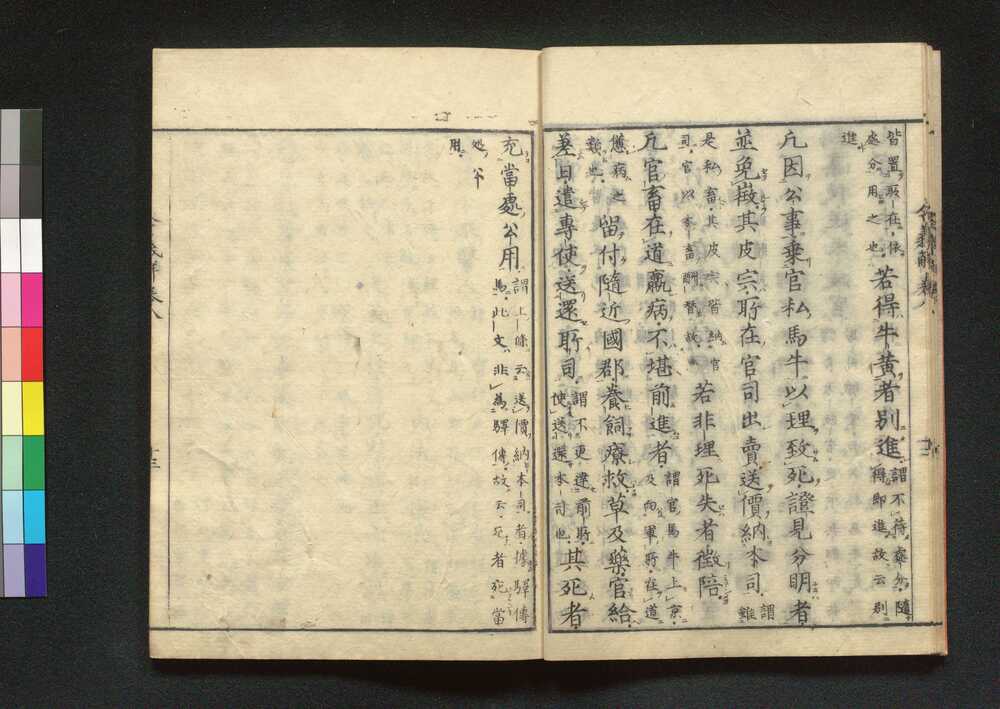 皆置取在依
處分用之也
若得牛黄者別進
謂不待處分隨
得即進故云別
進
凡因公事乗官私馬牛以理致死證見分明者
並免徴其皮宍所在官司出賣送價納本司
謂
雖
是私畜其皮宍皆納官
司官以本畜酬替故
若非理死失者徴陪
凡官畜在道羸病不堪前進者
謂官馬牛上京
及向軍所在道
憊病之
類也
留付隨近國郡養飼療救草及藥官給
差日遣專使送還所司
謂不更遣前所
使送還本司也
其死者
充當處公用
謂上條云送價納本司者據驛傳
馬此文非為驛傳故云死者充當
處公
用